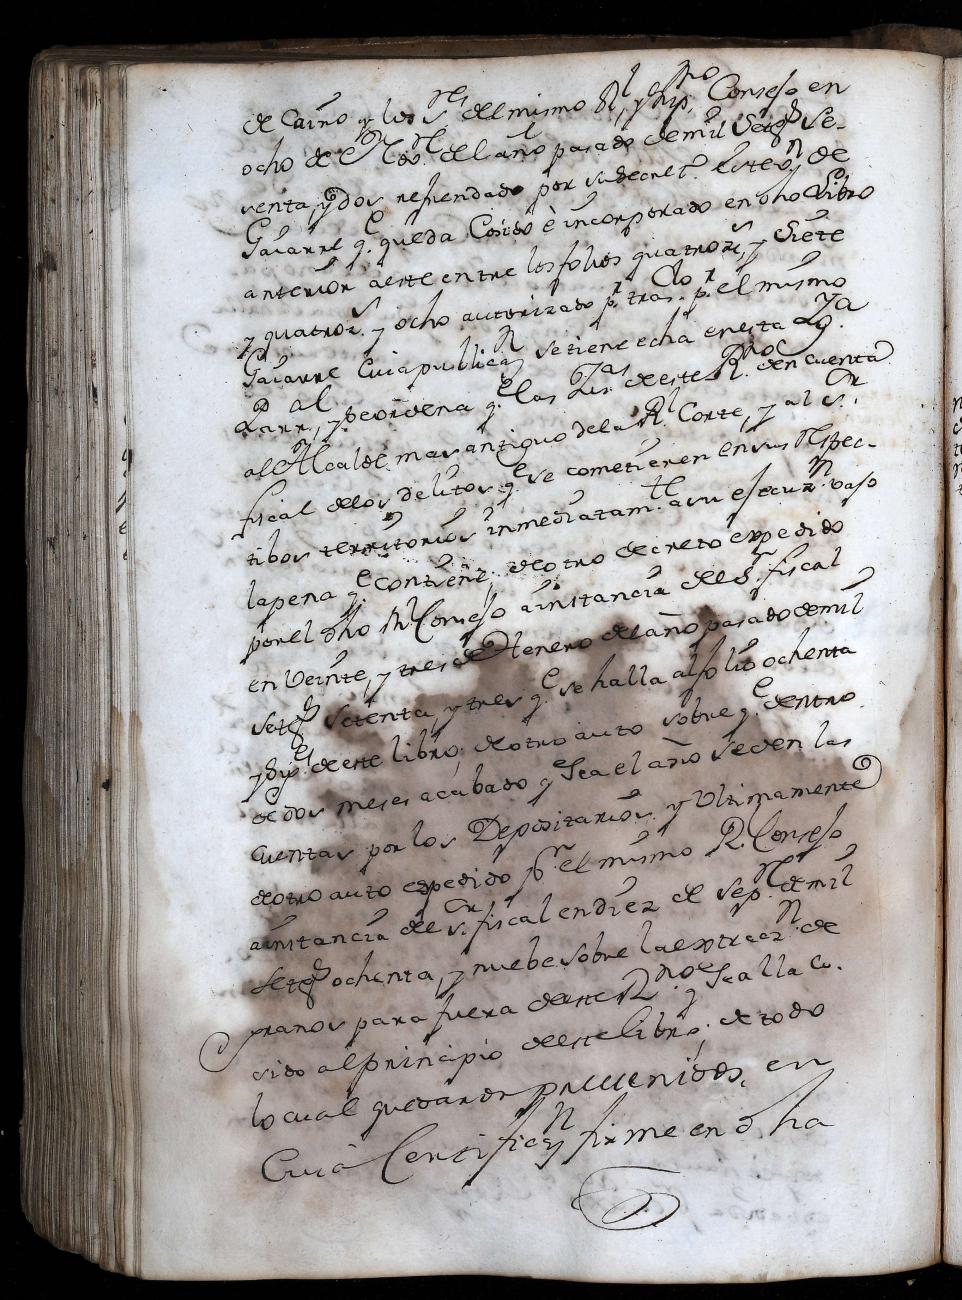 de Cairo y los S.res del mismo Rl. y Sup.mo Consejo en
ocho de el año pasado de mil Setez.s Se-
senta, y dos refrendado por su Secret.o Estevn. de
Gaiarre q.e queda Cosido è incorporado en dho Libro
anterior a este entre los folios quatroz.s y Siete
y quatroz.s y ocho autorizado p.r tras.do p.r el mismo
Gaiarre Cuia publicaz.n se tiene echa en esta
y se ordena q.e las de este R.no den cuenta
al Alcalde mas antiguo de la Rl. Corte, y al S.r
fiscal de los delitos q.e se cometieren en sus respec-
tibos territorios inmediatam.te a su ejecuz.n vajo
la pena q.e contiene; de otro decreto expedido
por el dho Rl. Consejo a instancia del S.r fiscal
en Veinte, y tres de Henero del año pasado de mil
setez.s setenta y tres q.e se halla al folio ochenta
y de este libro; de otro auto sobre q.e dentro
de dos meses acabado q.e sea el año se den las
cuentas por los Depositarios; y Ultimamente
de otro auto expedido p.r el mismo R. Consejo
a instancia del S.r fiscal en diez de Sep.re de mil
Setez.s ochenta, y nuebe sobre la extracz.n de
granos para fuera de este R.no q.e se alla co-
sido al principio de este libro; de todo
lo cual quedaron prevenidos, en
Cuia Certificaz.n firme en dha